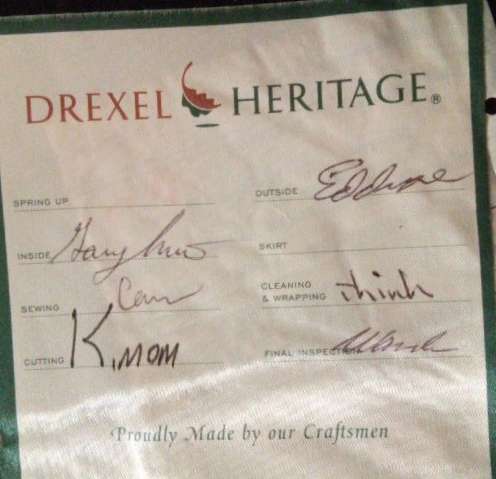 DREXEL HERITAGE®
SPRING UP
OUTSIDE
INSIDE
SKIRT
SEWING
CLEANING
& WRAPPING thinh
CUTTING K, MOM
FINAL INSPECTION
Proudly Made by our Craftsmen